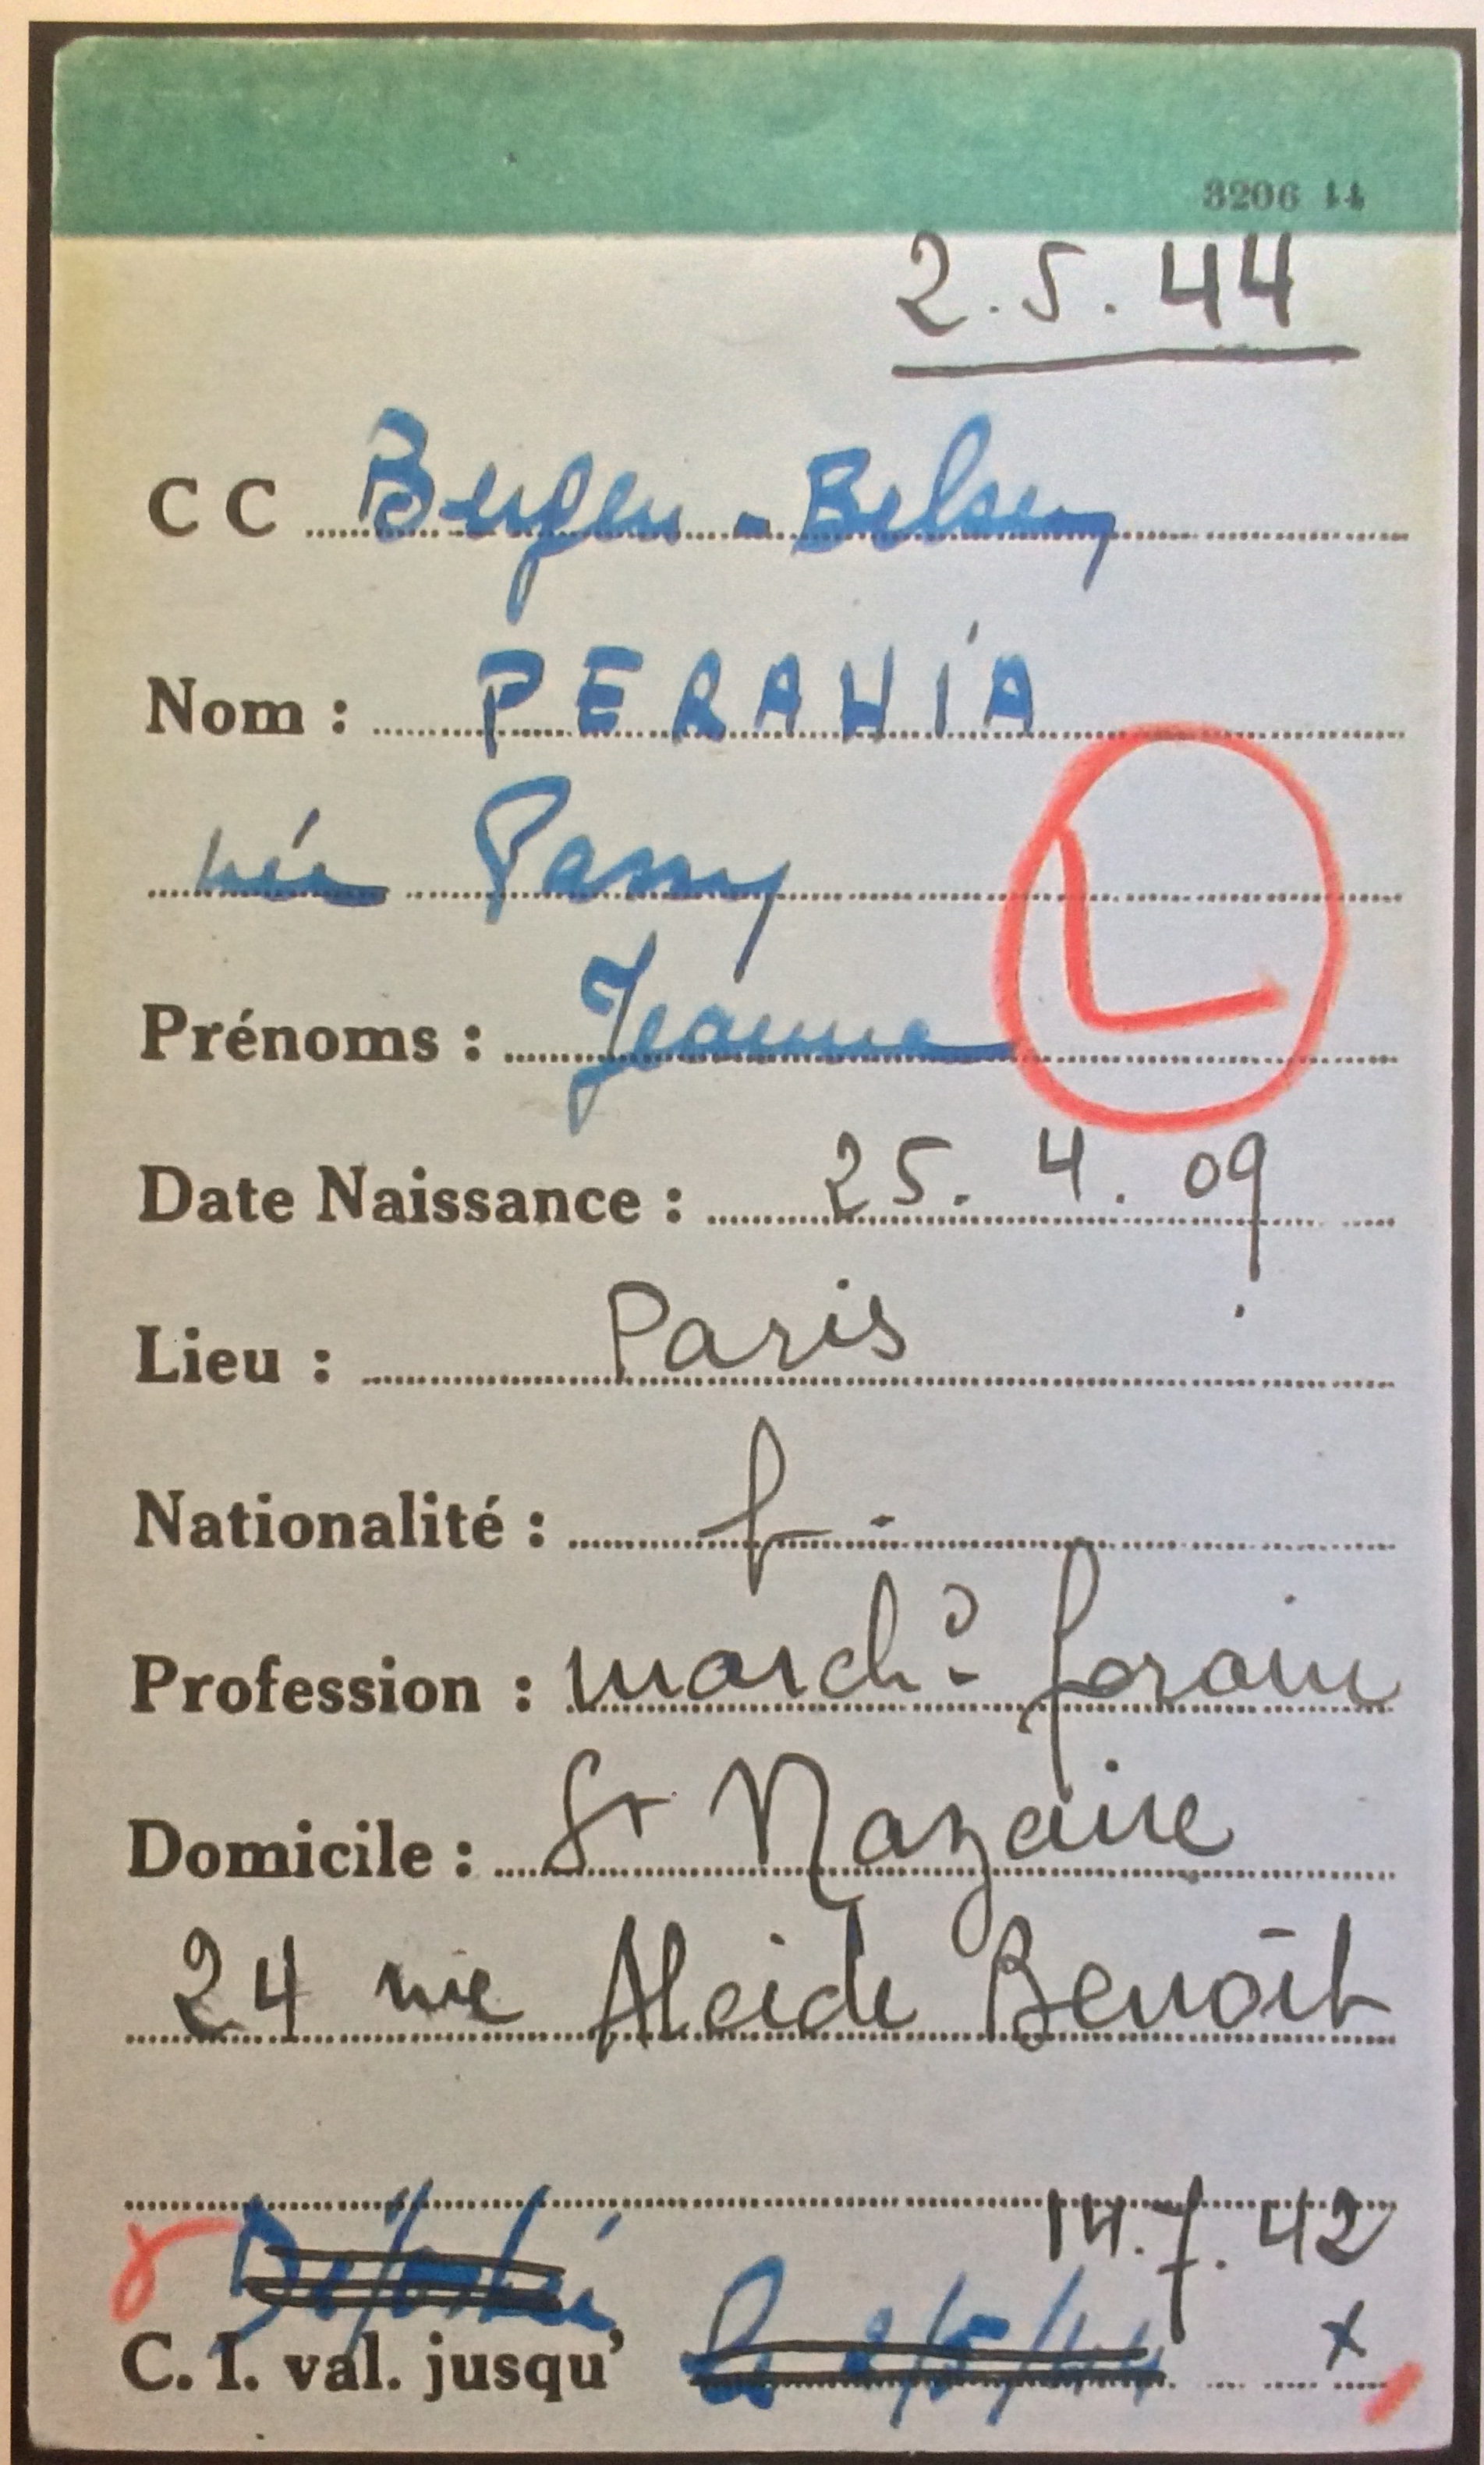 3206 44
2.5.44
C C Bergen-Belsen
Nom : PERAHIA
née Passy
Prénoms : Jeanne
L
Date Naissance : 25.4.09
Lieu : Paris
Nationalité : f.
Profession : marchᵈ forain
Domicile : St Nazaire
24 rue Alcide Benoît
14.7.42
Déporté
C. I. val. jusqu' le 2/5/44 x